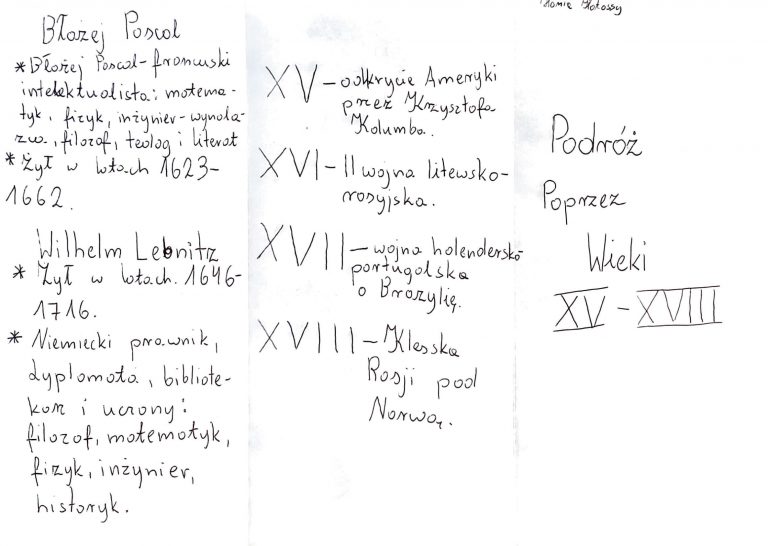 Błażej Pascal
* Błażej Pascal - francuski
intelektualista: matema-
tyk, fizyk, inżynier-wynala-
zca, filozof, teolog i literat
* Żył w latach 1623-
1662.
Wilhelm Lebnitz
* Żył w latach. 1646-
1716.
* Niemiecki prawnik,
dyplomata, bibliote-
karz i uczony:
filozof, matematyk,
fizyk, inżynier,
historyk.
XV - odkrycie Ameryki
przez Krzysztofa
Kolumba.
XVI - II wojna litewsko-
rosyjska.
XVII - wojna holendersko
portugalska
o Brazylię.
XVIII - Klęska
Rosji pod
Narwą.
Podróż
Poprzez
Wieki
XV - XVIII